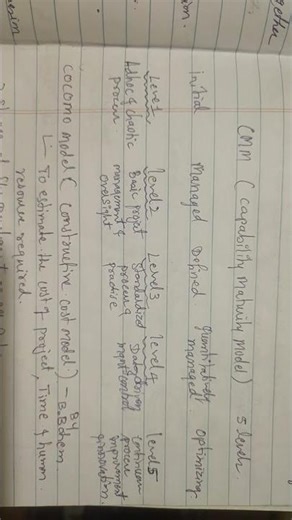 CMM (capability Maturity Model) 5 level
initial Managed Defined quantitatively managed optimizing
Level 1 level 2 level 3 level 4 level 5
Adhoc & chaotic process
Basic project management & oversight
Standardized process & practice
continuous process improvement & innovation.
COCOMO Model ( Constructive cost model) - By B.Bohem
↳ To estimate the cost of project, Time & human
resource required.